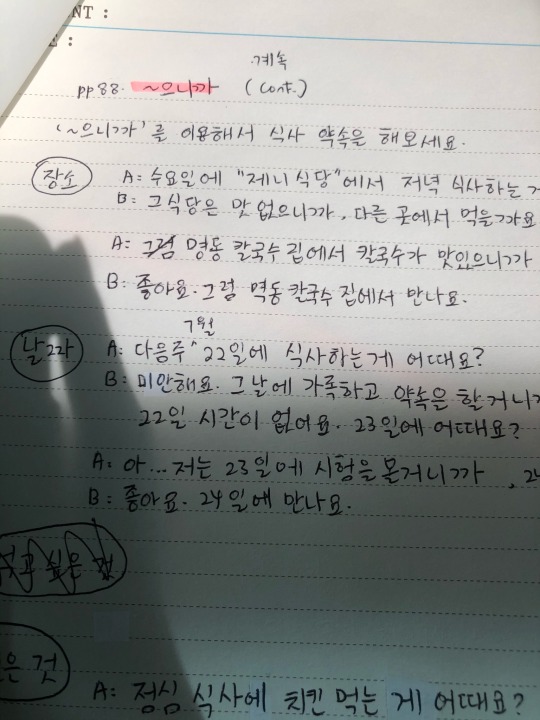 NT :
E :
계속
pp 88. ~으니까 (cont.)
'~으니까'를 이용해서 식사 약속을 해보세요.
장소
A: 수요일에 "제니 식당"에서 저녁 식사하는 거
B: 그 식당은 맛 없으니까, 다른 곳에서 먹을까요
A: 그럼 명동 칼국수 집에서 칼국수가 맛있으니까
B: 좋아요. 그럼 멱동 칼국수 집에서 만나요.
7월
날짜
A: 다음주 ^ 22일에 식사하는게 어때요?
B: 미안해요. 그날에 가록하고 약속을 할거니까
22일 시간이 없어요. 23일에 어때요?
A: 아... 저는 23일에 시험을 볼거니까, 24
B: 좋아요. 24일에 만나요.
싶은
은 것
A: 정심 식사에 치킨 먹는 게 어때요?